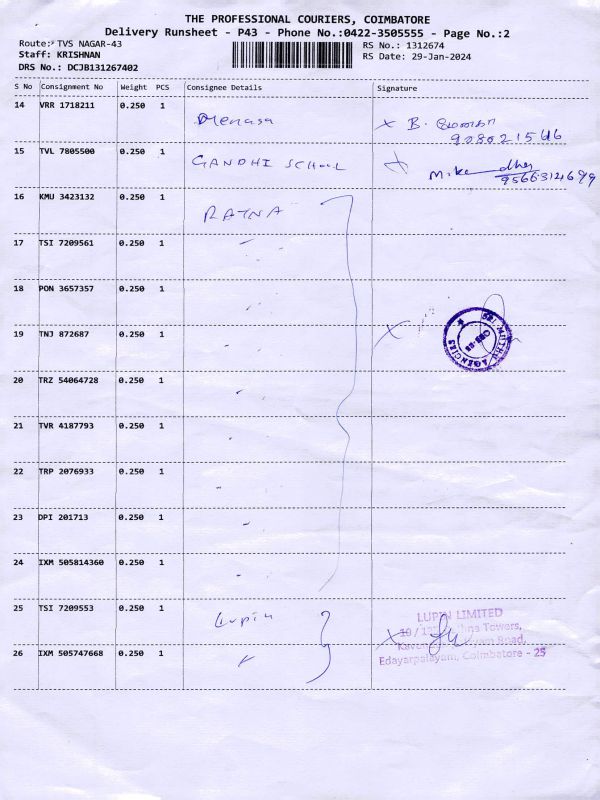 THE PROFESSIONAL COURIERS, COIMBATORE
Delivery Runsheet - P43 - Phone No.:0422-3505555 - Page No.:2
Route: TVS NAGAR-43
RS No.: 1312674
Staff: KRISHNAN
RS Date: 29-Jan-2024
DRS No.: DCJB131267402
S No Consignment No Weight PCS Consignee Details Signature
14 VRR 1718211 0.250 1 x B.
9080215416
15 TVL 7805500 0.250 1 GANDHI SCHOOL
16 KMU 3423132 0.250 1 RATNA
17 TSI 7209561 0.250 1 "
18 PON 3657357 0.250 1 "
19 TNJ 872687 0.250 1 " x SRI MUTHU AGENCIES
20 TRZ 54064728 0.250 1 "
21 TVR 4187793 0.250 1 "
22 TRP 2076933 0.250 1 "
23 DPI 201713 0.250 1 "
24 IXM 505814360 0.250 1 "
25 TSI 7209553 0.250 1 Lupin LUPIN LIMITED
Towers,
Road,
26 IXM 505747668 0.250 1 " Edayarpalayam, Coimbatore - 25